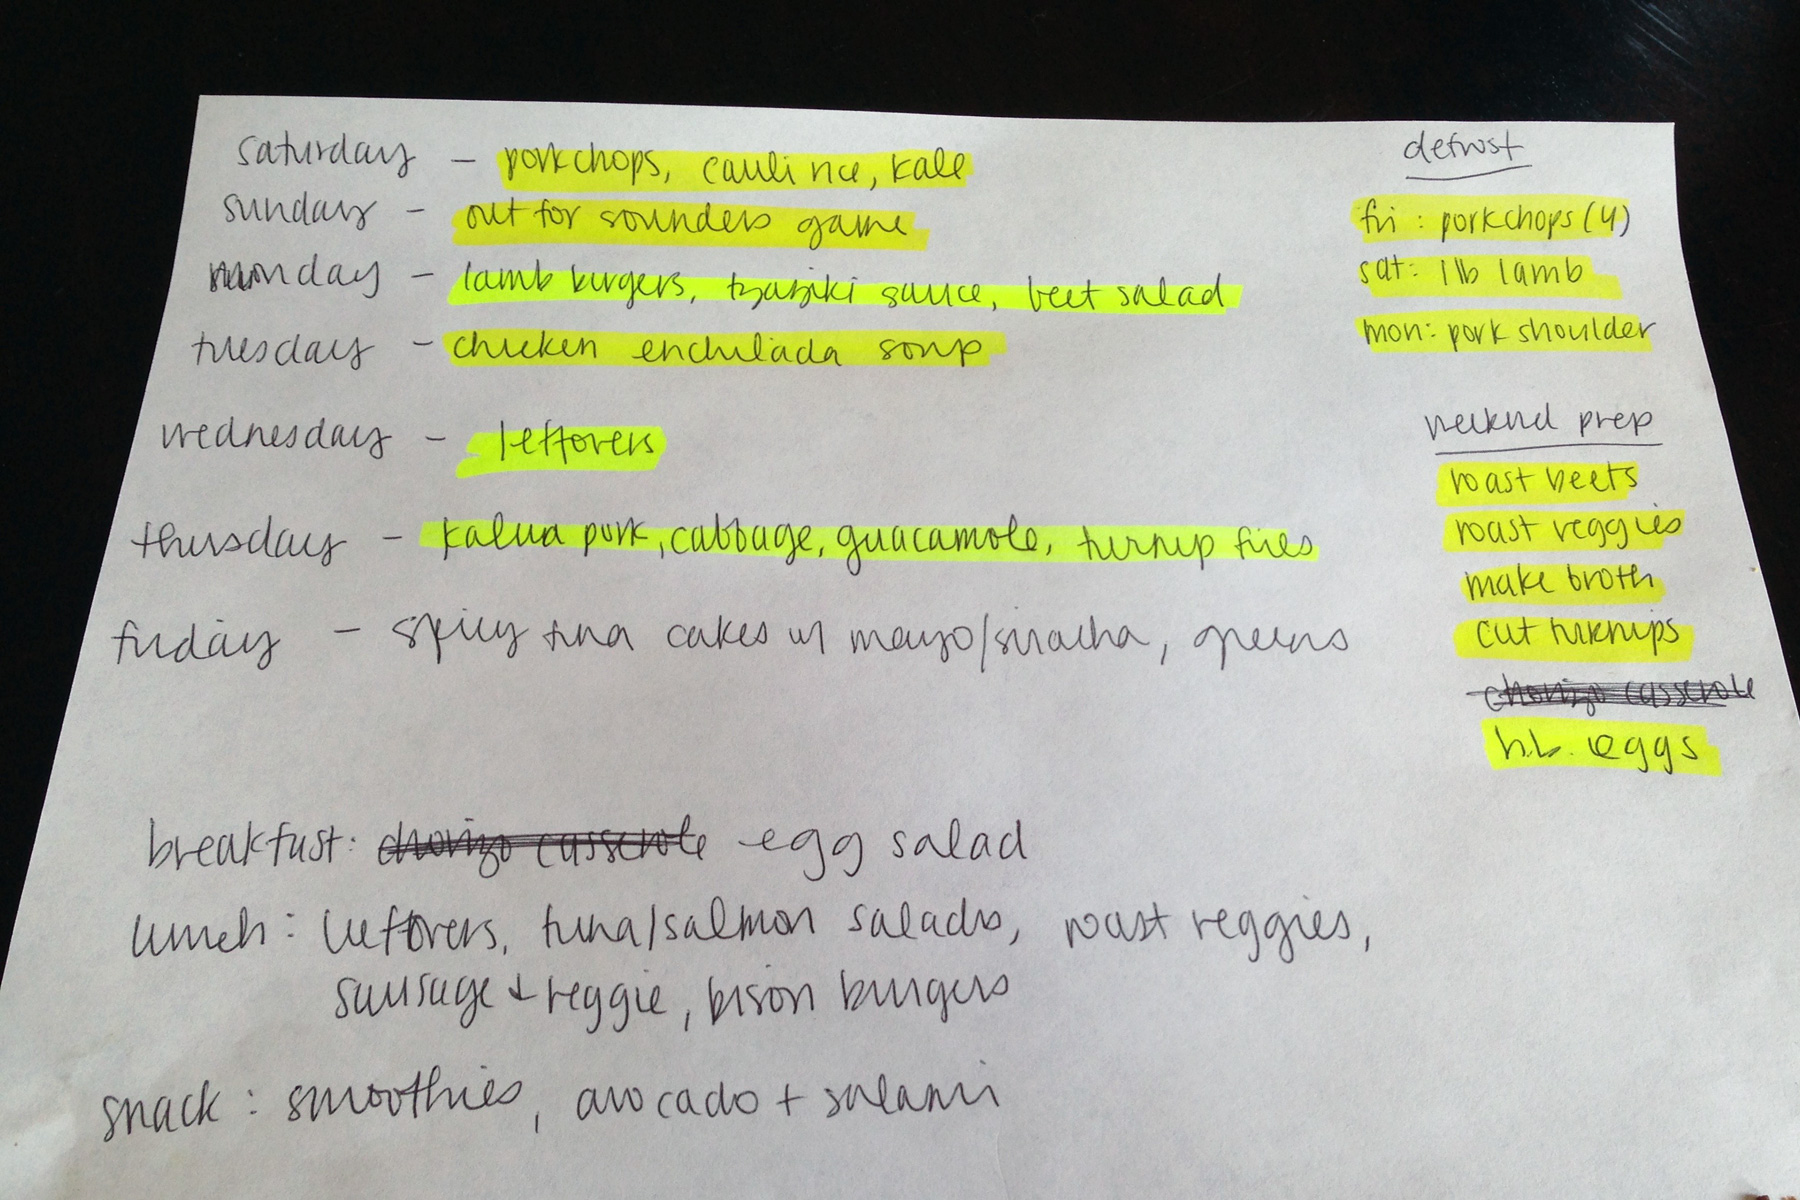 saturday – porkchops, cauli rice, kale
sunday – out for sounders game
monday – lamb burgers, tzatziki sauce, beet salad
tuesday – chicken enchilada soup
wednesday – leftovers
thursday – kalua pork, cabbage, guacamole, turnip fries
friday – spicy tuna cakes w/ mayo/siracha, greens
breakfast: chorizo casserole egg salad
lunch: leftovers, tuna/salmon salads, roast veggies,
sausage + veggie, bison burgers
snack: smoothies, avocado + salami
defrost
fri: porkchops (4)
sat: 1 lb lamb
mon: pork shoulder
weeknd prep
roast beets
roast veggies
make broth
cut turnips
chorizo casserole
h.b. eggs